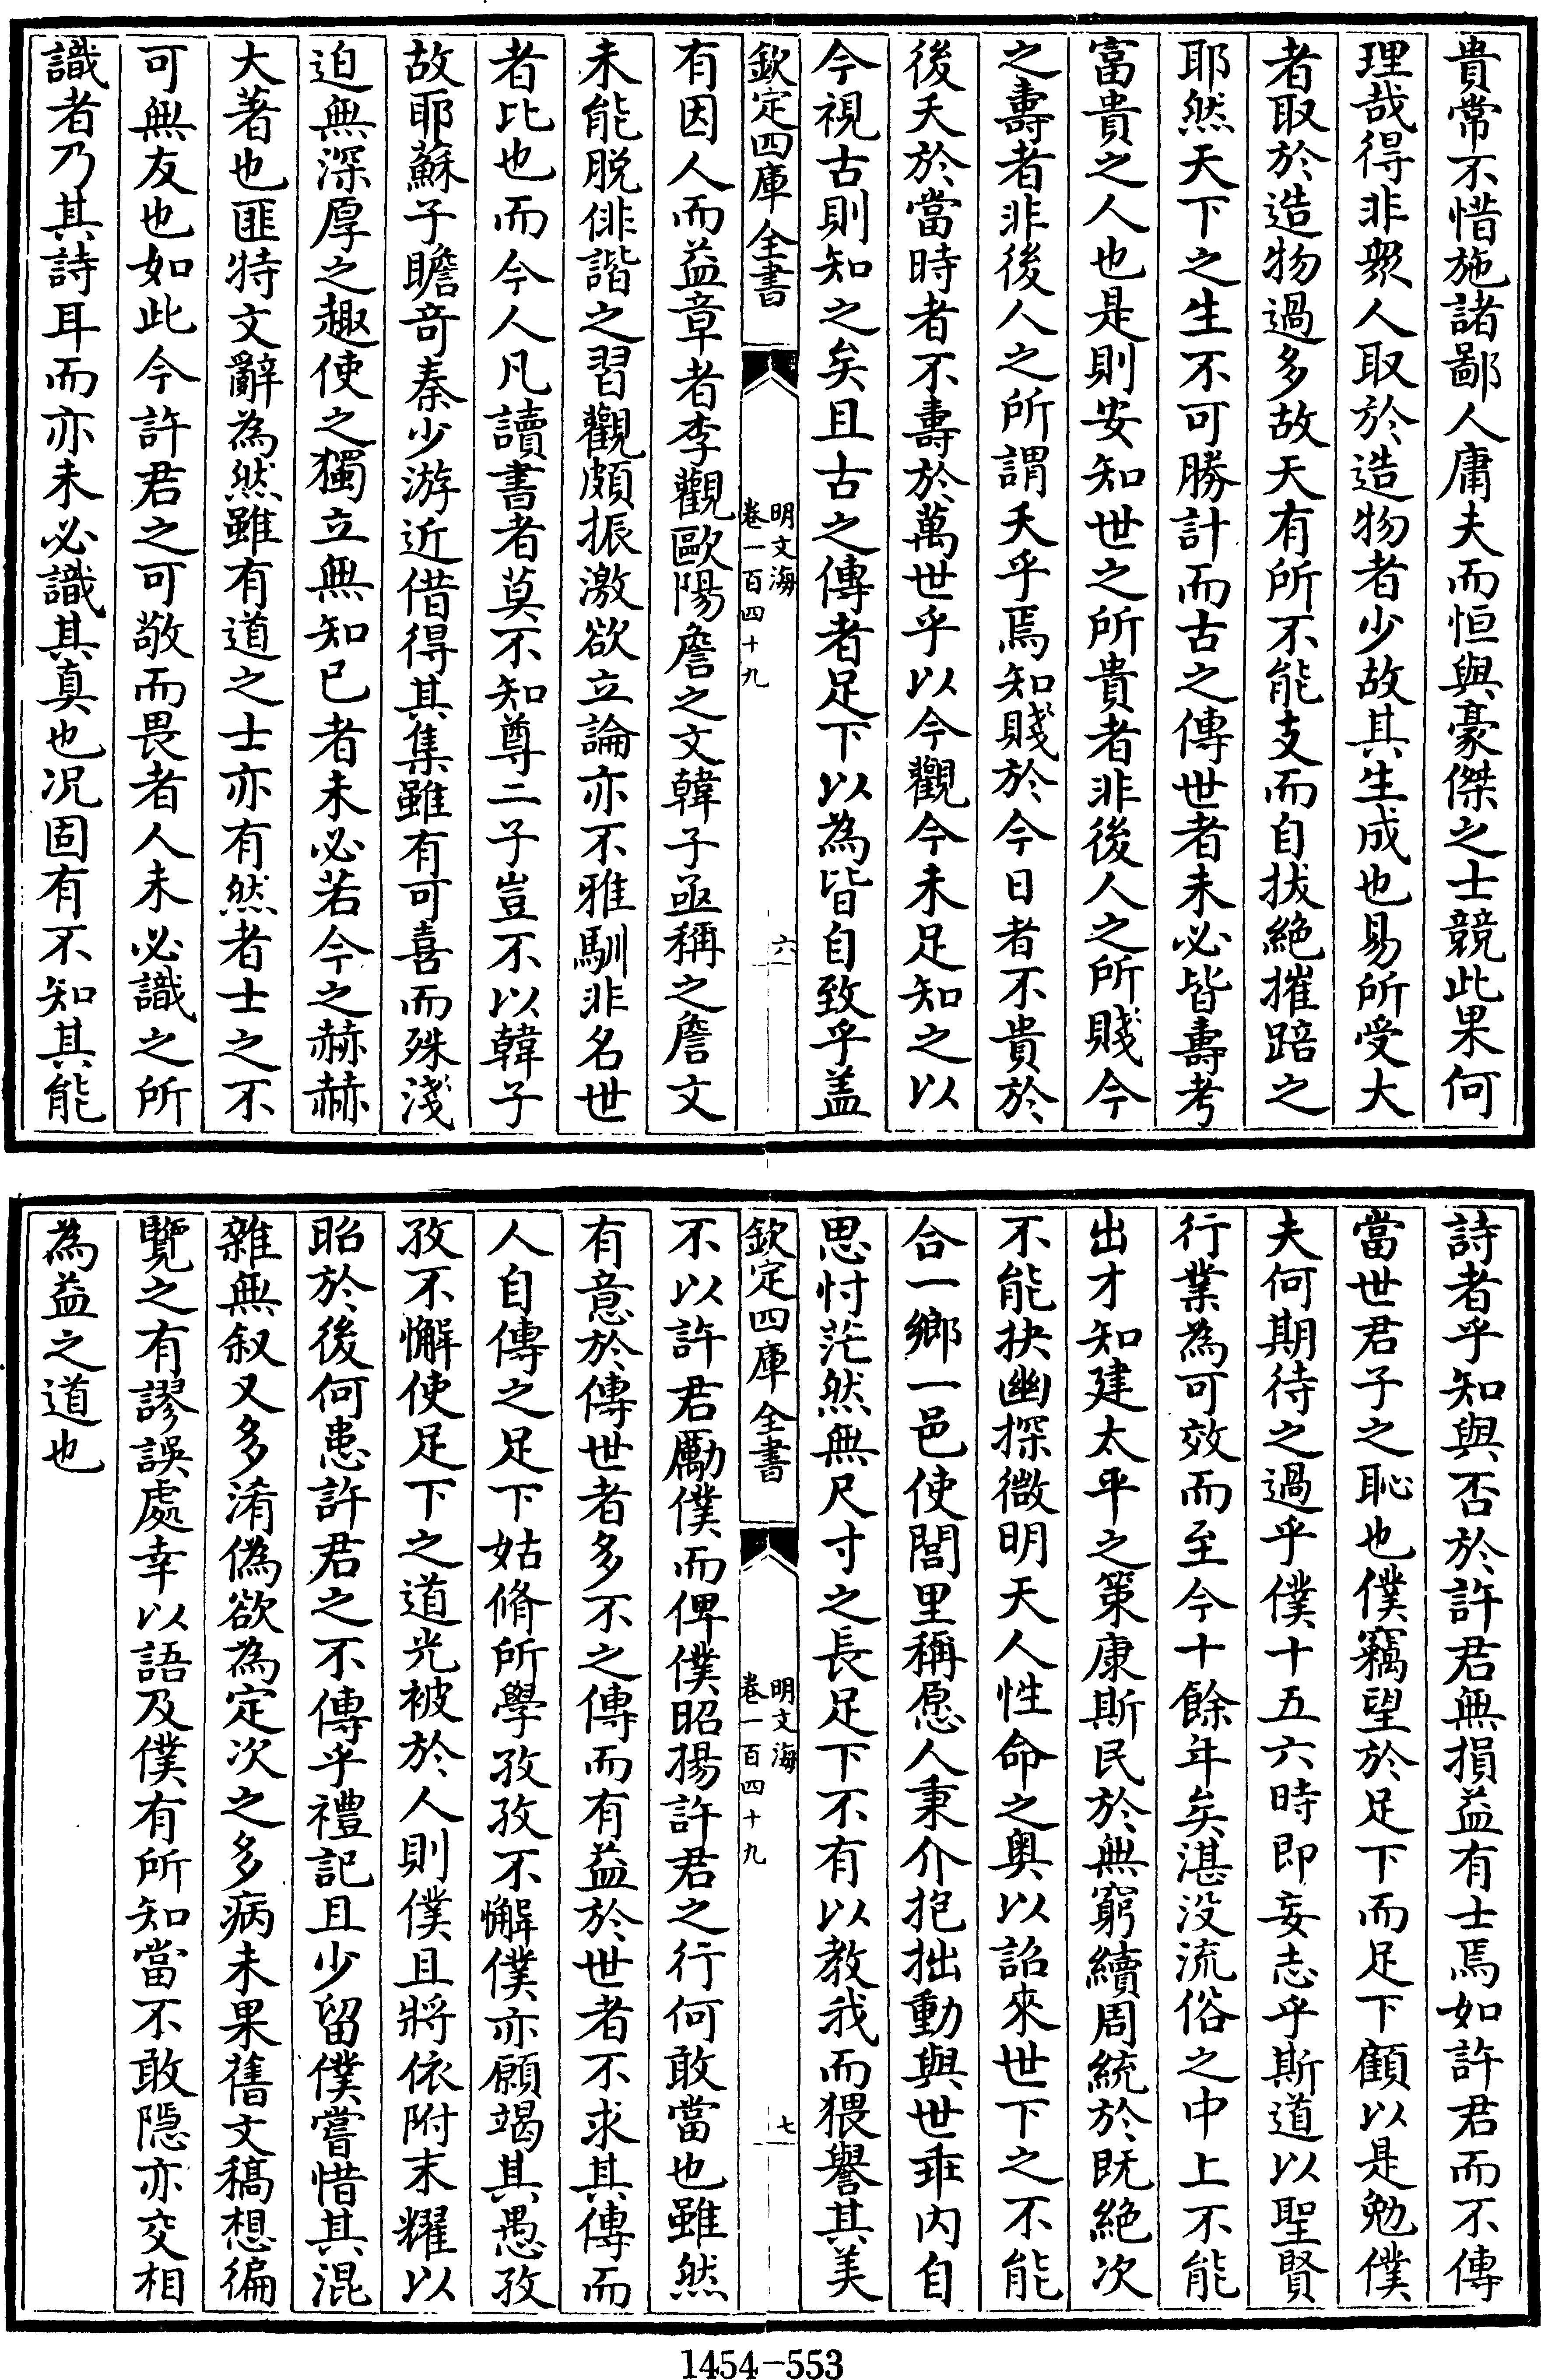 貴常不惜施諸鄙人庸夫而恒與豪傑之士競此果何
理哉得非衆人取於造物者少故其生成也易所受大
者取於造物過多故天有所不能支而自拔絶摧踣之
耶然天下之生不可勝計而古之傳世者未必皆壽考
富貴之人也是則安知世之所貴者非後人之所賤今
之壽者非後人之所謂夭乎焉知賤於今日者不貴於
後夭於當時者不壽於萬世乎以今觀今未足知之以
今視古則知之矣且古之傳者足下以為皆自致乎盖
欽定四庫全書
明文海
卷一百四十九
六
有因人而益章者李觀歐陽詹之文韓子亟稱之詹文
未能脱俳諧之習觀頗振激欲立論亦不雅馴非名世
者比也而今人凡讀書者莫不知尊二子豈不以韓子
故耶蘇子瞻竒秦少游近借得其集雖有可喜而殊淺
迫無深厚之趣使之獨立無知已者未必若今之赫赫
大著也匪特文辭為然雖有道之士亦有然者士之不
可無友也如此今許君之可敬而畏者人未必識之所
識者乃其詩耳而亦未必識其真也况固有不知其能
詩者乎知與否於許君無損益有士焉如許君而不傳
當世君子之恥也僕竊望於足下而足下顧以是勉僕
夫何期待之過乎僕十五六時即妄志乎斯道以聖賢
行業為可效而至今十餘年矣湛没流俗之中上不能
出才知建太平之策康斯民於無窮續周統於既絶次
不能抉幽探微明天人性命之奥以詔來世下之不能
合一鄉一邑使閭里稱愿人秉介抱拙動與世乖内自
思忖茫然無尺寸之長足下不有以教我而猥譽其美
欽定四庫全書
明文海
卷一百四十九
七
不以許君勵僕而俾僕昭揚許君之行何敢當也雖然
有意於傳世者多不之傳而有益於世者不求其傳而
人自傳之足下姑脩所學孜孜不懈僕亦願竭其愚孜
孜不懈使足下之道光被於人則僕且將依附末耀以
昭於後何患許君之不傳乎禮記且少留僕嘗惜其混
雜無叙又多淆偽欲為定次之多病未果舊文稿想徧
覽之有謬誤處幸以語及僕有所知當不敢隠亦交相
為益之道也
1454-553